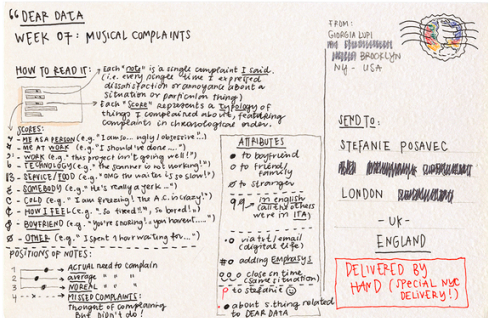 “DEAR DATA
WEEK 07: MUSICAL COMPLAINTS
HOW TO READ IT:
Each "note" is a single complaint I said.
(i.e. every single time I expressed
dissatisfaction or annoyance about a
situation or particular thing)
Each "Score" represents a typology of
things I complained about, featuring
complaints in chronological order.
SCORES:
ME AS A PERSON (e.g. "I am so... ugly/obsessive"..)
ME AT WORK (e.g. "I should've done....")
WORK (e.g. "This project isn't going well!")
TECHNOLOGY (e.g. "the scanner is not working!")
SERVICE/FOOD (e.g. "OMG the wait is so slow!")
SOMEBODY (e.g. "He's really a jerk...")
COLD (e.g. "I am freezing! The A.C. is crazy!")
HOW I FEEL (e.g. "So tired!", "so bored!")
BOYFRIEND (e.g. "You're snoring! you haven't.....")
OTHER (e.g. "I spent 1 hour waiting for...")
POSITIONS OF NOTES:
1 ACTUAL need to complain
2 average " "
3 NO REAL " "
4 MISSED COMPLAINTS:
Thought of complaining
but didn't do!
ATTRIBUTES
to boyfriend
to friend/
family
to stranger
in english
(all the others
were in ITA)
via txt/email
(digital life)
# adding EMPHASYS
close on time
(same situation)
to Stefanie ☺
about s.thing related
to DEAR DATA
FROM:
GIORGIA LUPI
BROOKLYN
NY - USA
SEND TO:
STEFANIE POSAVEC
LONDON
-UK-
ENGLAND
DELIVERED BY
HAND (SPECIAL NYC
DELIVERY!)